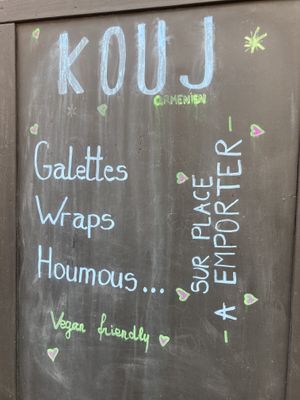 KOUJ
ARMENIEN
Galettes
Wraps
Houmous...
Vegan friendly
SUR PLACE
- A EMPORTER -